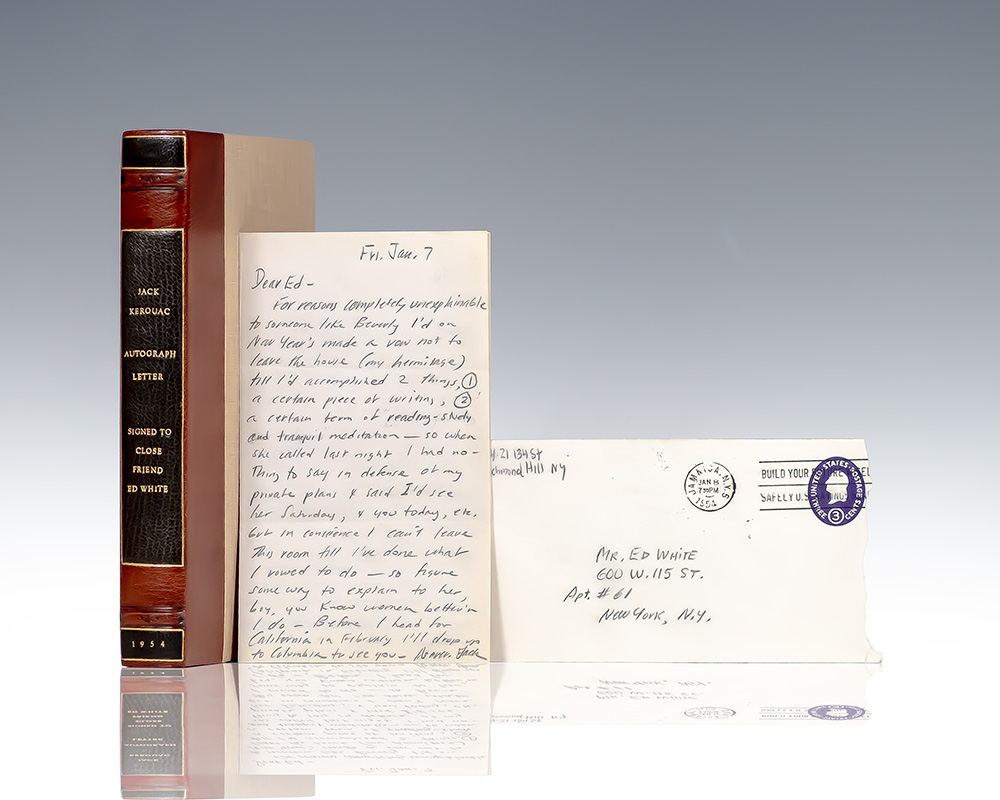 JACK
KEROUAC
AUTOGRAPH
LETTER
SIGNED TO
CLOSE
FRIEND
ED WHITE
1954
Fri. Jan. 7
Dear Ed –
For reasons completely unexplainable
to someone like Beverly I'd on
New Year's made a vow not to
leave the house (my hermitage)
till I'd accomplished 2 things, ①
a certain piece of writing, ②
a certain term of reading-study
and tranquil meditation — so when
she called last night I had no-
thing to say in defense of my
private plans & said I'd see
her Saturday, & you today, etc.
but in conscience I can't leave
this room till I've done what
I vowed to do — so figure
some way to explain to her,
boy, you know women better'n
I do – Before I head for
California in February I'll drop up
to Columbia to see you – Jack
21 134 St
Richmond Hill NY
JAMAICA, N.Y.
JAN 8
PM
1954
BUILD YOUR
SAFELY U.S. SAVINGS
UNITED STATES POSTAGE
3
THREE CENTS
MR. ED WHITE
600 W. 115 ST.
Apt. # 61
NEW YORK, N.Y.